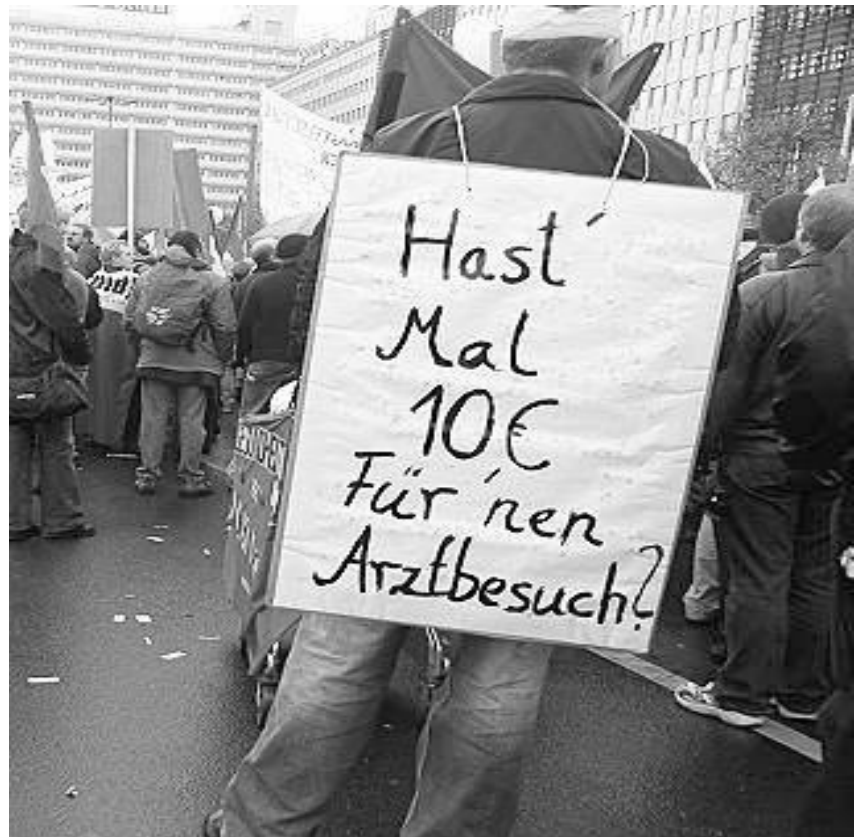 Hast'
Mal
10€
Für 'nen
Arztbesuch?